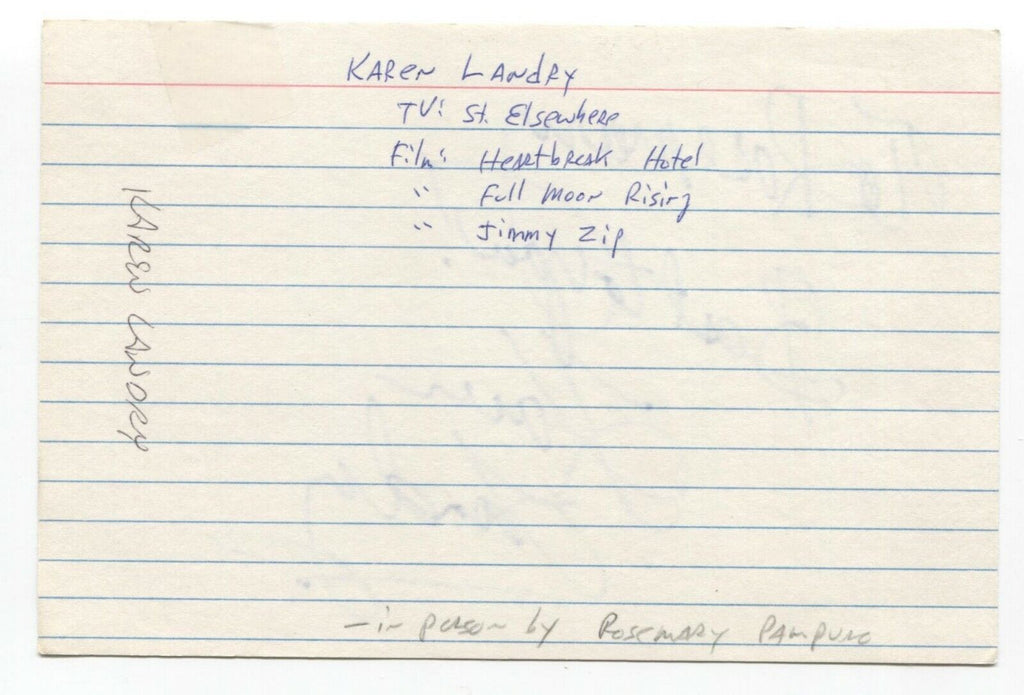 KAREN LANDRY
TV: St. Elsewhere
Film: Heartbreak Hotel
" Full Moon Rising
" Jimmy Zip
KAREN LANDRY
- in person by ROSEMARY PAMPURO